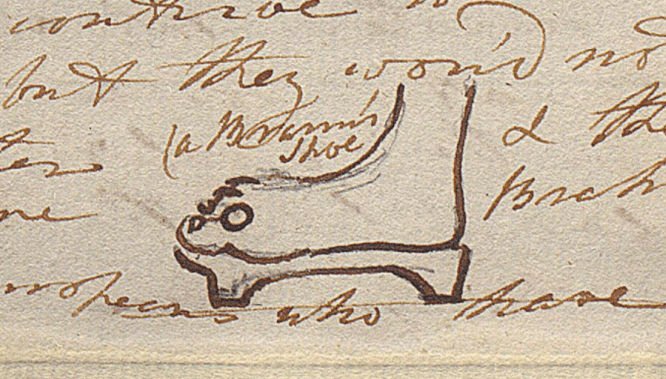 contrive to
but they wou'd no
(a Bramin's
shoe
& th
ter
Brah
ne
ropeans who have